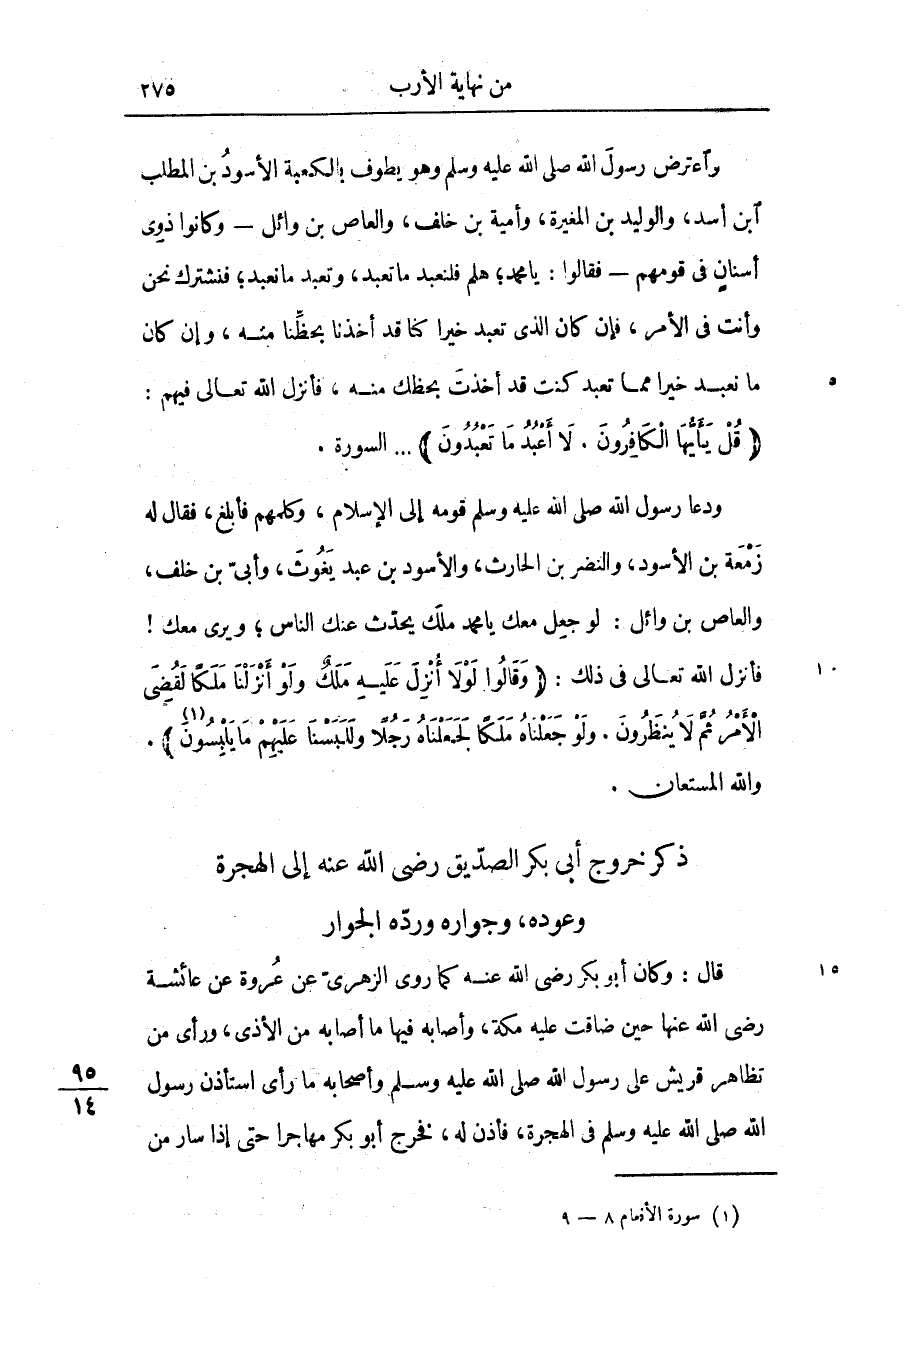 من نهاية الأرب ٢٧٥
وٱعترض رسولَ الله صلى الله عليه وسلم وهو يطوف بالكعبة الأسودُ بن المطلب
ٱبن أسد، والوليد بن المغيرة، وأمية بن خلف، والعاص بن وائل — وكانوا ذوى
أسنانٍ فى قومهم — فقالوا : يامحمد؛ هلم فلنعبد ماتعبد، وتعبد مانعبد؛ فنشترك نحن
وأنت فى الأمر ، فإن كان الذى تعبد خيرا كنا قد أخذنا بحظِّنا منه ، وإن كان
ما نعبد خيرا مما تعبد كنت قد أخذتَ بحظك منه ، فأنزل الله تعالى فيهم : ٥
﴿ قُلْ يَأَيُّهَا الْكَافِرُونَ . لَا أَعْبُدُ مَا تَعْبُدُونَ ﴾ ... السورة .
ودعا رسول الله صلى الله عليه وسلم قومه إلى الإسلام ، وكلمهم فأبلغ، فقال له
زَمْعَة بن الأسود، والنضر بن الحارث، والأسود بن عبد يَغُوثَ، وأبىّ بن خلف،
والعاص بن وائل : لو جعل معك يامحمد ملَك يحدّث عنك الناس ؛ ويرى معك !
فأنزل الله تعالى فى ذلك : ﴿ وَقَالُوا لَوْلَا أُنْزِلَ عَلَيهِ مَلَكٌ ولَوْ أَنْزَلْنَا مَلَكًا لَقُضِىَ ١٠
الْأَمْرُ ثُمَّ لَا يُنظَرُونَ . ولَوْ جَعَلْنَاهُ مَلَكًا لَجَعَلْنَاهُ رَجُلًا ولَلَبَسْنَا عَلَيْهِمْ مَا يَلْبِسُونَ (١) ﴾ .
والله المستعان .
ذكر خروج أبى بكر الصدّيق رضى الله عنه إلى الهجرة
وعوده، وجواره وردّه الجوار
قال : وكان أبو بكر رضى الله عنه كما روى الزهرىّ عن عُروة عن عائشة ١٥
رضى الله عنها حين ضاقت عليه مكة، وأصابه فيها ما أصابه من الأذى، ورأى من
تظاهر قريش على رسول الله صلى الله عليه وسلم وأصحابه ما رأى استأذن رسول ٩٥
١٤
الله صلى الله عليه وسلم فى الهجرة، فأذن له ، فخرج أبو بكر مهاجرا حتى إذا سار من
(١) سورة الأنعام ٨ — ٩